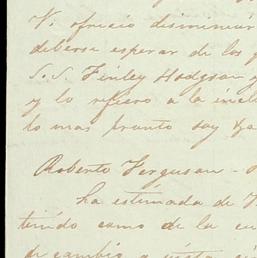 V. ofrecio disiminuir
deberse esperar de los
S.S. Finley Hodgson y
y lo refiero a la incl
lo mas pronto soy
Roberto Ferguson -
ha estimada de V
tenido como de la cu
de cambio a vista